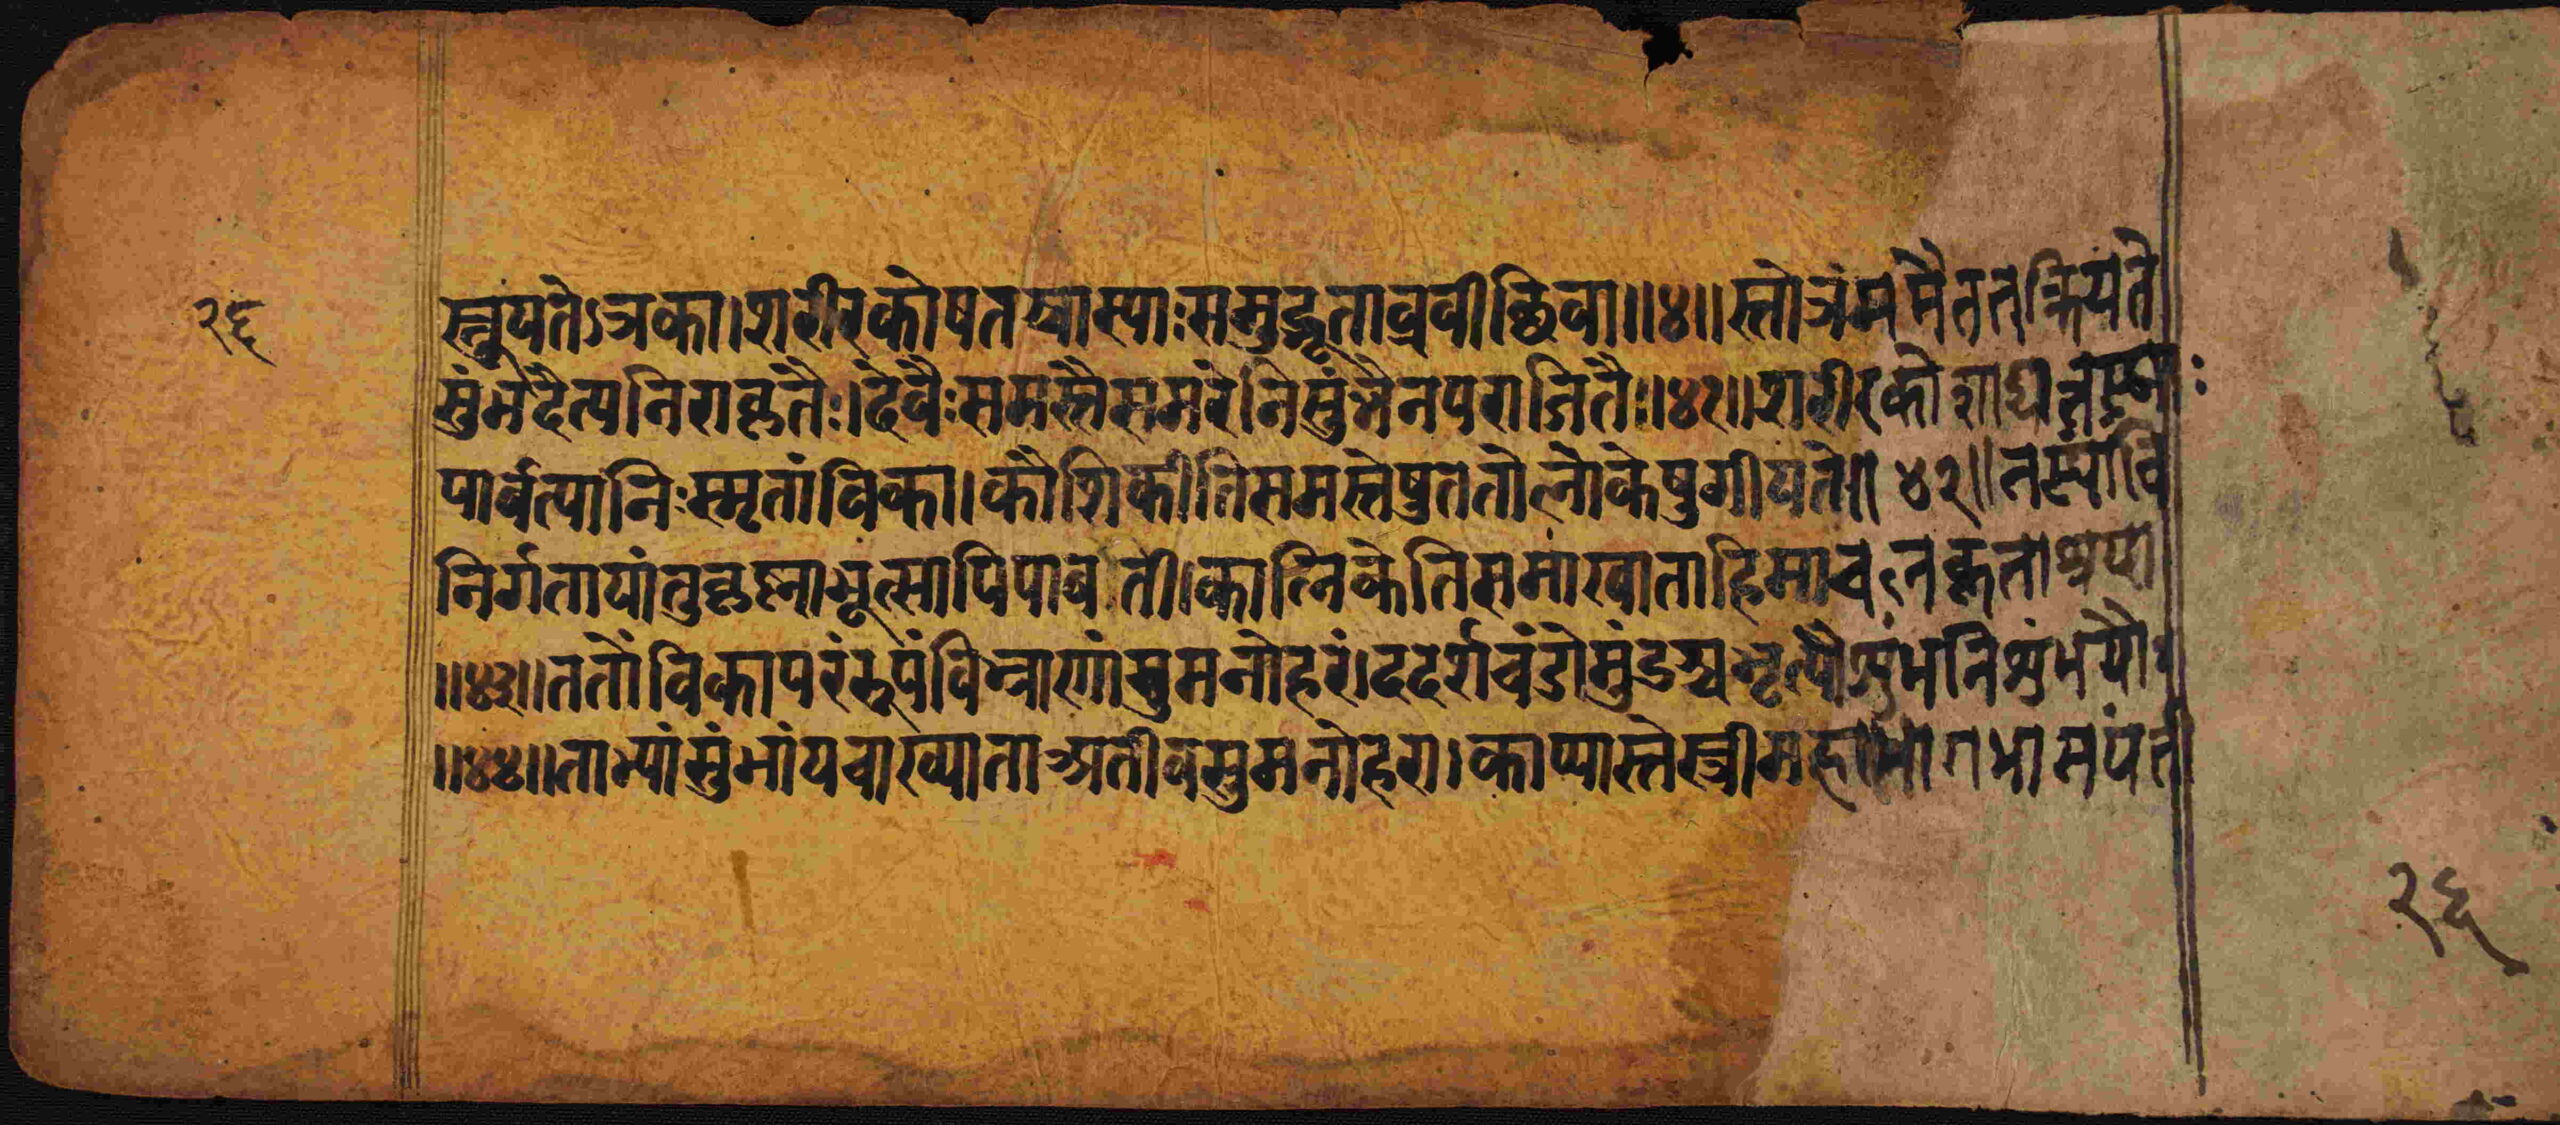 २६
स्तूयतेऽत्रका।शरीरकोषतश्चास्याःसमुद्भूताव्रवीच्छिवा॥४॥स्तोत्रंममैतत्क्रियते
सुंभदैत्यनिराकृतैः।देवैःसमस्तैसमरेनिसुंभेनपराजितैः॥४१॥शरीरकोशाद्यत्तस्याः
पार्वत्यानिःसृतांविका।कौशिकीतिसमस्तेषुततोलोकेषुगीयते॥४२॥तस्यांवि
निर्गतायांतुकृष्नाभूत्सापिपार्वती।कालिकेतिसमाख्याताहिमाचलकृताश्रया
॥४३॥ततोंविकापरंरूपंविभ्राणांसुमनोहरं।ददर्शचंडोमुंडश्चभृत्यौशुंभनिशुंभयोः
॥४४॥ताभ्यांसुंभांयचाख्याताअतीवसुमनोहरा।काप्यास्तेस्त्रीमहा
२६